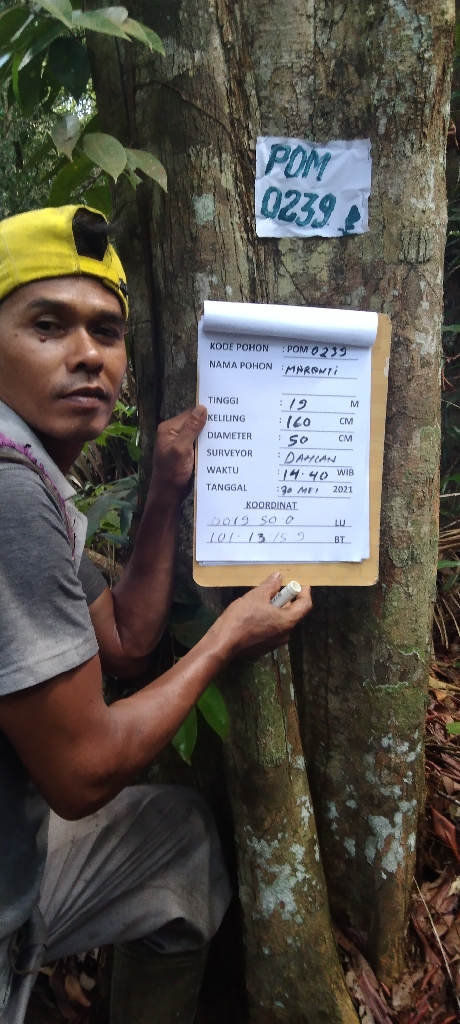 POM
0239
KODE POHON : POM 0239
NAMA POHON : MARONTI
TINGGI : 19 M
KELILING : 160 CM
DIAMETER : 50 CM
SURVEYOR : DAHLAN
WAKTU : 14.40 WIB
TANGGAL : 30 MEI 2021
KOORDINAT
0019 50.0 LU
101.13 BT